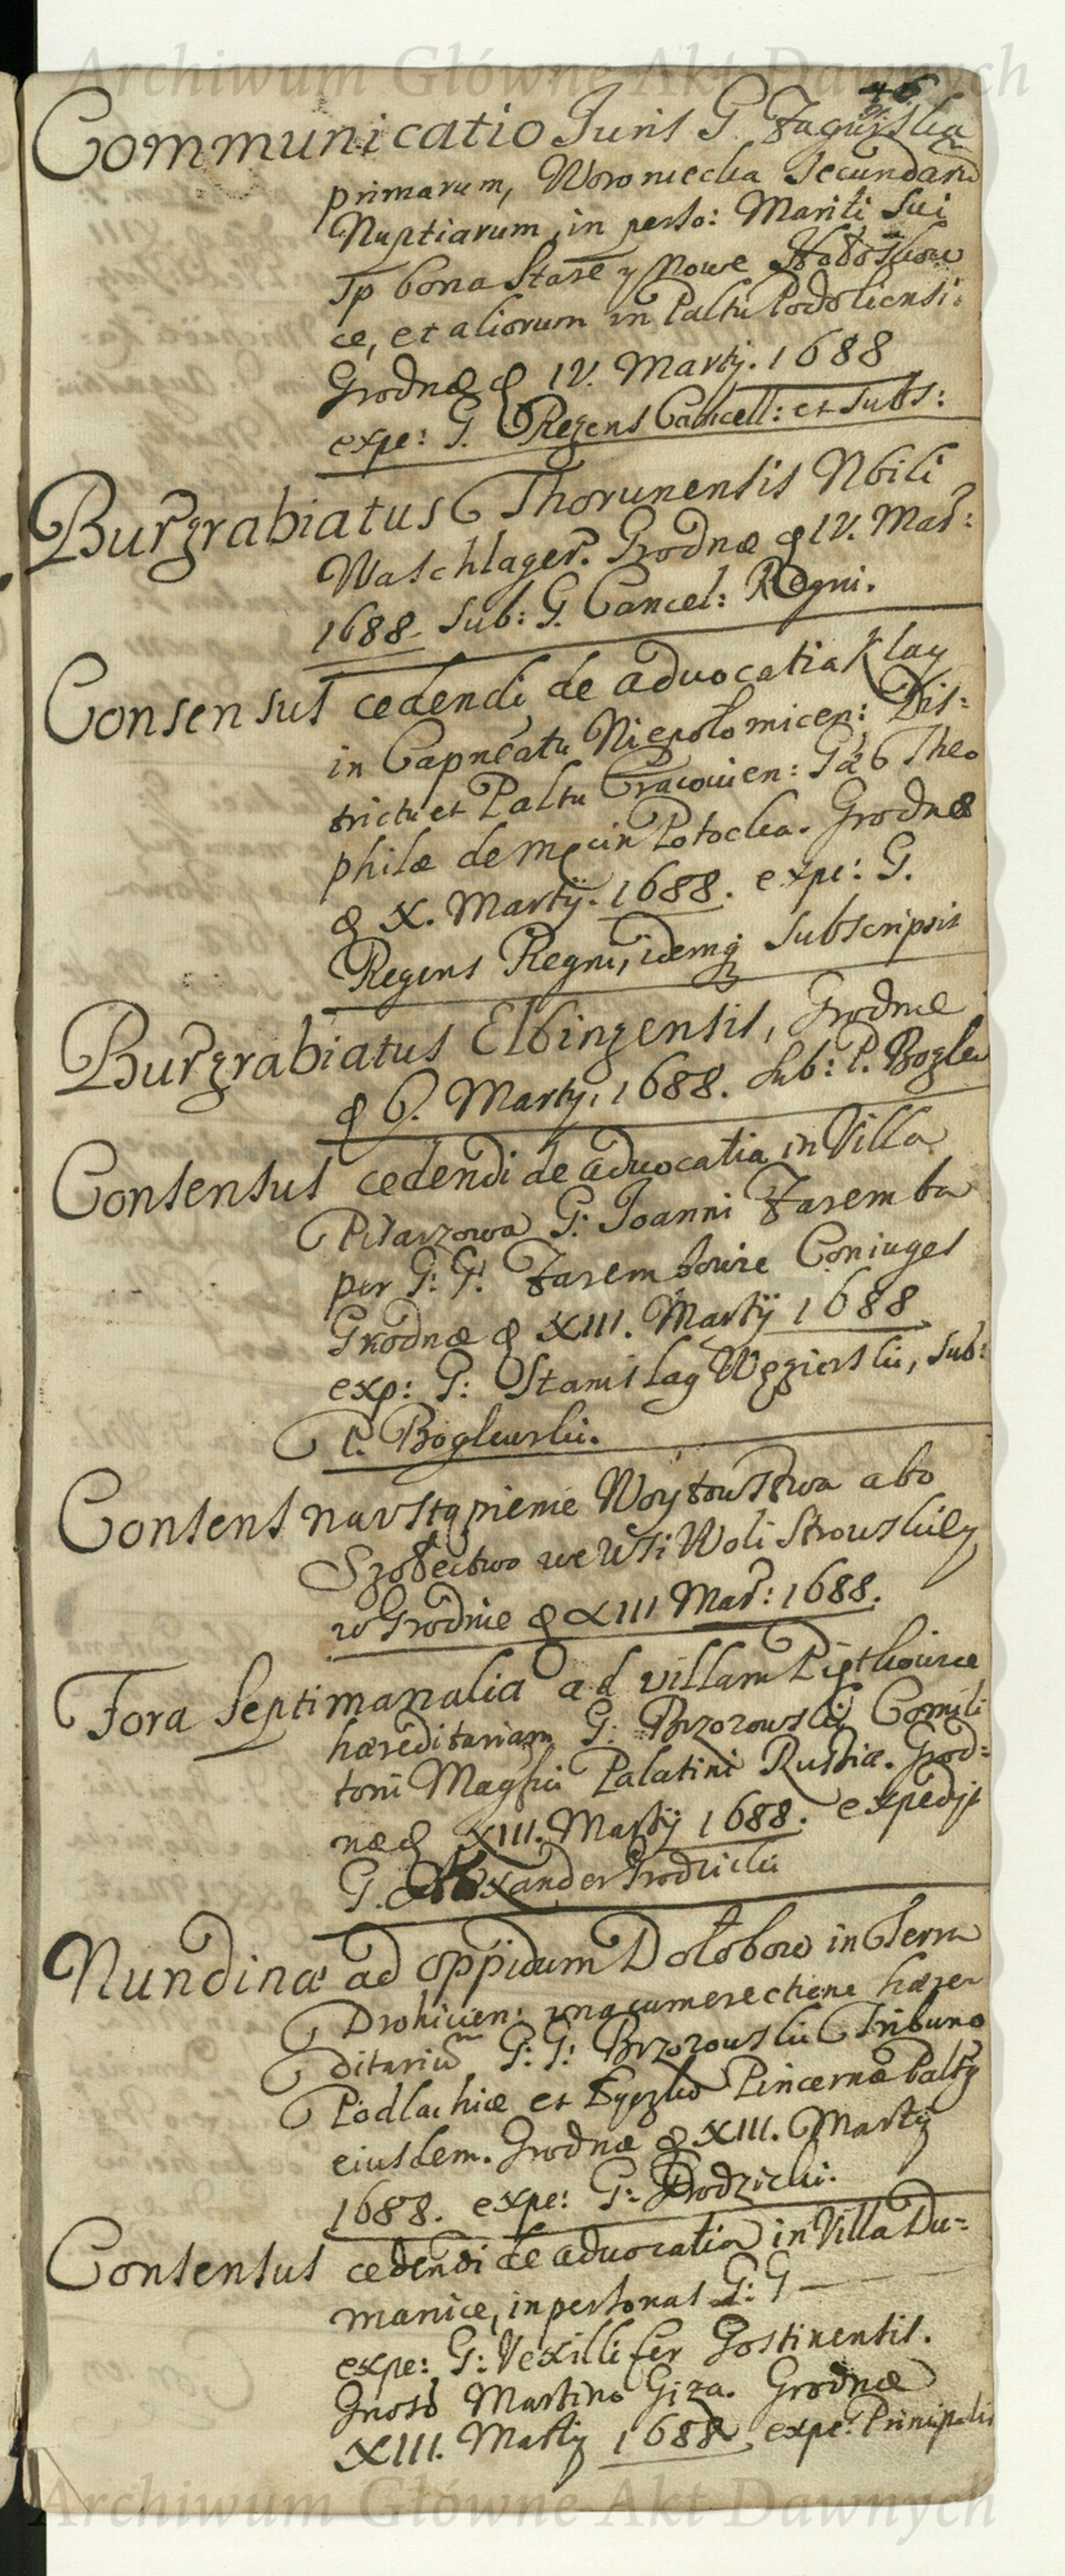 Archiwum Główne Akt Dawnych
46
Communicatio Juris G Zagurska
primarum, Woroniecka Secundarū
Nuptiarum, in perso: Mariti sui
Jp bona Stare y Nowe
ce, et aliorum in Paltu Podoliensi.
Grodnæ d IV. Martij. 1688
expe: G. Regens Cancell: et subs:
Burgrabiatus Thorunensis Nbili
Waschlager. Grodnæ d IV. Mar:
1688. Sub: G. Cancel: Regni.
Consensus cedendi de advocatia Klay
in Capneatu Niepołomicen: Dis:
trictu et Paltu Cracovien: Gab Theo
philæ de Potocka. Grodnæ
d X. Martij. 1688. expe: G.
Regens Regni, idemq subscripsit
Burgrabiatus Elbingensis, Grodnæ
d 6. Martij. 1688. Sub: P. Boglew
Consensus cedendi de advocatia in Villa
Pisarzowa G: Joanni Zaremba
per G: G: Zarembowie Coniuges
Grodnæ d XIII. Martij 1688.
exp: G: Stanislag Węgierski, sub:
P. Boglewski.
Consens na ustąpienie Woytowstwa abo
Szołectwo we Wsi Woli Strowskiey
w Grodnie d XIII Mar: 1688.
Fora Septimanalia ad villam Piętkowice
hæreditariam G: Brzozowski Comili
toni Magfici Palatini Russiæ. Grod:
næ d XIII. Martij 1688. expedijt
G. Alexander Grodzicki
Nundinæ ad oppidum Dołobow in Terra
Drohicien: una cum erectione hære
ditariū G: G: Brzozowski Tribuno
Podlachiæ et Pincernæ Paltg
eiusdem. Grodnæ d XIII. Martij
1688. expe: G: Grodzicki.
Consensus cedendi de advocatia in Villa Du:
manice, in personas G: G — — —
expe: G: Vexillifer Gostinensis.
Gnoso Martino Giza. Grodnæ
XIII. Martij 1688. expe: Principalis
Archiwum Główne Akt Dawnych